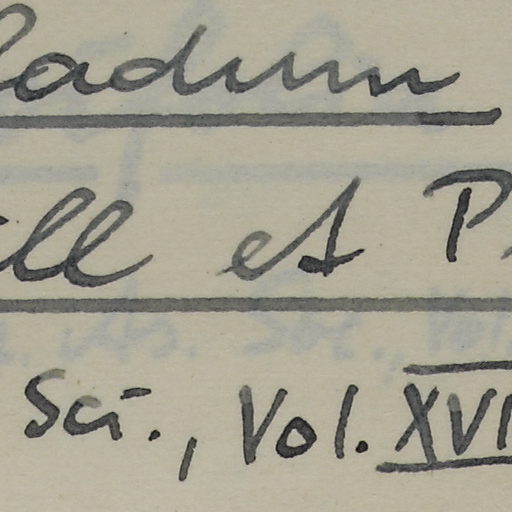 ladum
ill et P
Sci., Vol. XVI